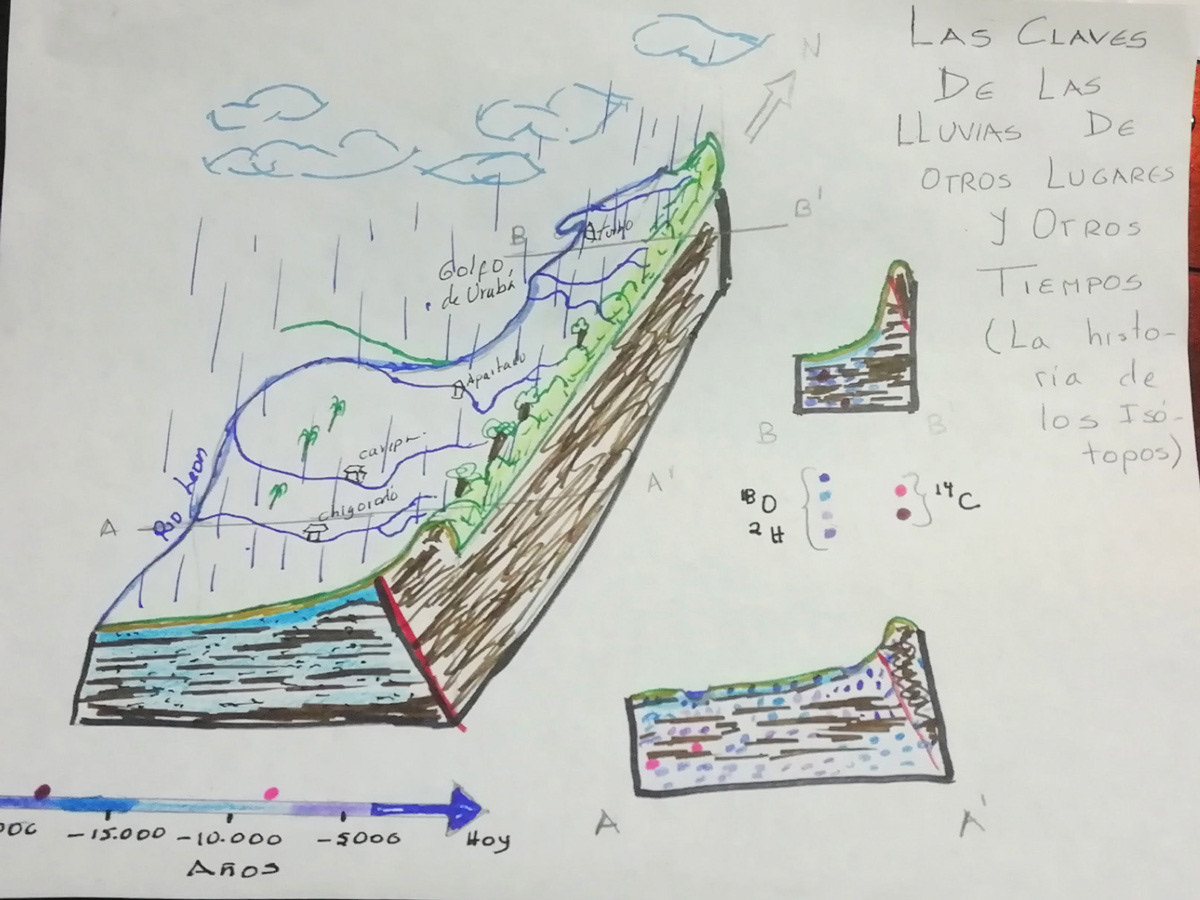 LAS CLAVES
DE LAS
LLUVIAS DE
OTROS LUGARES
Y OTROS
TIEMPOS
(La histo-
ria de
los Isó-
topos)
N
B
B'
Golfo
de Urabá
Apartado
Rio Leon
chigorodó
A
A'
B
B
18O
2H
14C
A
A'
-15.000
-10.000
-5000
Hoy
AÑOS